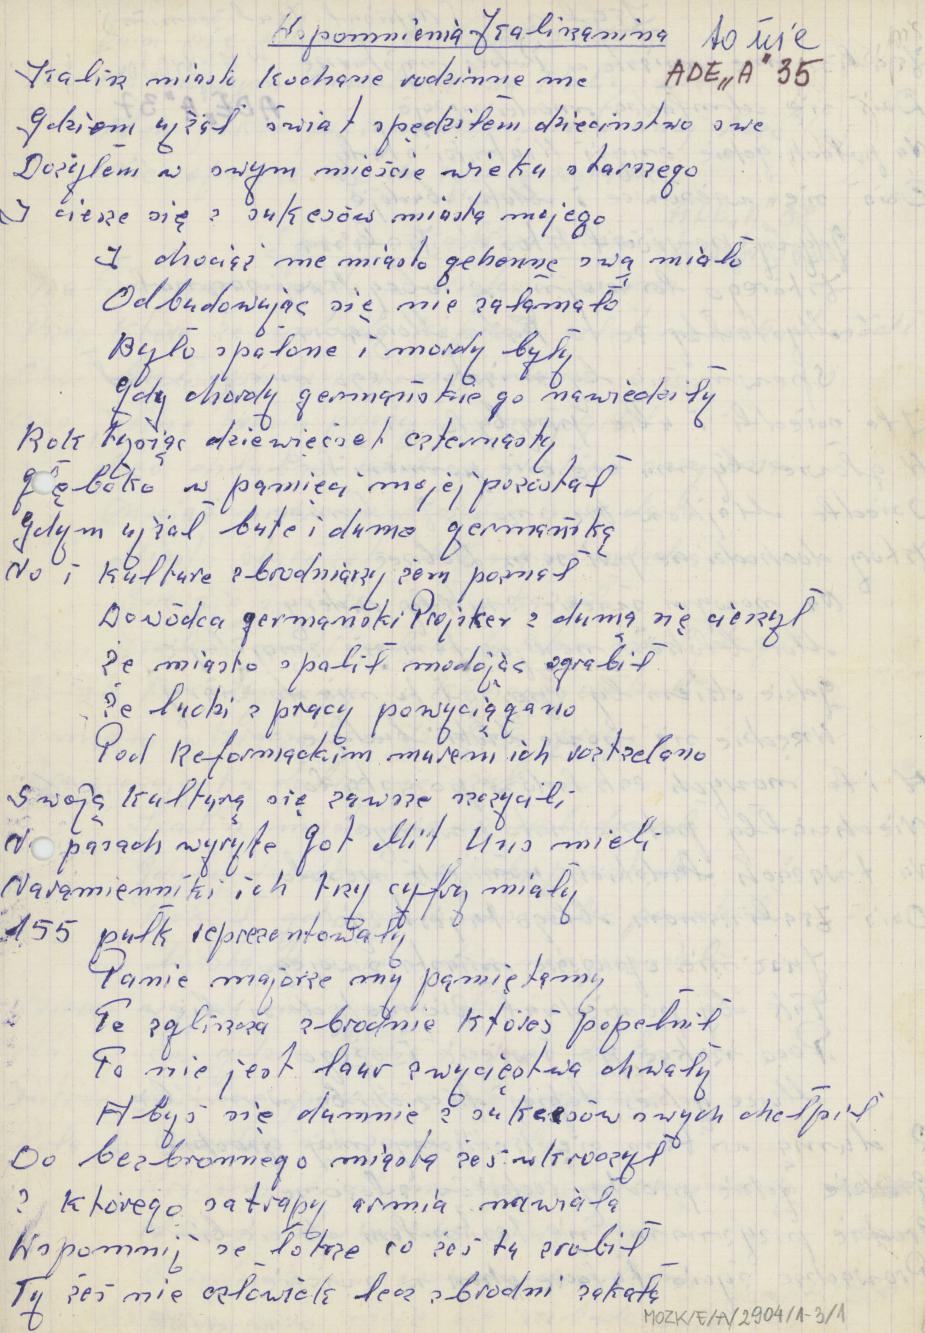 Wspomnienia Kaliszanina to nie
ADE„A" 35
Kalisz miasto kochane rodzinne me
Gdziem ujżał świat spędziłem dzieciństwo swe
Dożyłem w swym mieście wieku starszego
I ciesze się z sukcesów miasta mojego
I chociąż me miasto gehennę swą miało
Odbudowując się nie załamało
Było spalone i mordy były
Gdy chordy germańskie go nawiedziły
Rok tysiąc dziewięćset czternasty
Głęboko w pamięci mojej pozostał
Gdym ujżał bute i dume germańską
No i kulture zbrodniarzy żem poznał
Dowódca germański Projsker z dumą się cieszył
Że miasto spalił modując ograbił
Że ludzi z pracy powyciągano
Pod Reformackim murem ich roztzelano
Swoją kulturą się zawsze szczycili
Na pasach wyryte Got Mit Uns mieli
Naramienniki ich trzy cyfry miały
155 pułk reprezentowały
Panie majorze my pamiętamy
Te zgliszcza zbrodnie któreś popełnił
To nie jest laur zwycięstwa chwały
Abyś się dumnie z sukcesów swych chełpił
Do bezbronnego miasta żeś wkroczył
Z którego satrapy armia nawiała
Wspomnij se łotrze co żeś tu zrobił
Ty żeś nie człowiek lecz zbrodni zakała
MOZK/E/A/2904/1-3/1